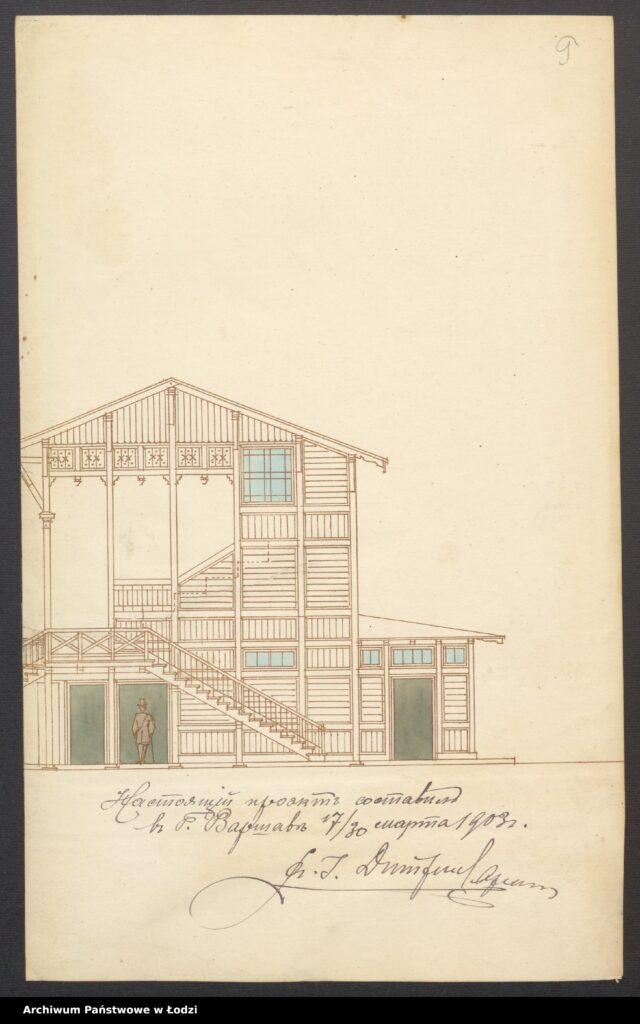 9
Настоящій проэктъ составилъ
въ Г. Варшавѣ 17/30 марта 1903г.
Archiwum Państwowe w Łodzi